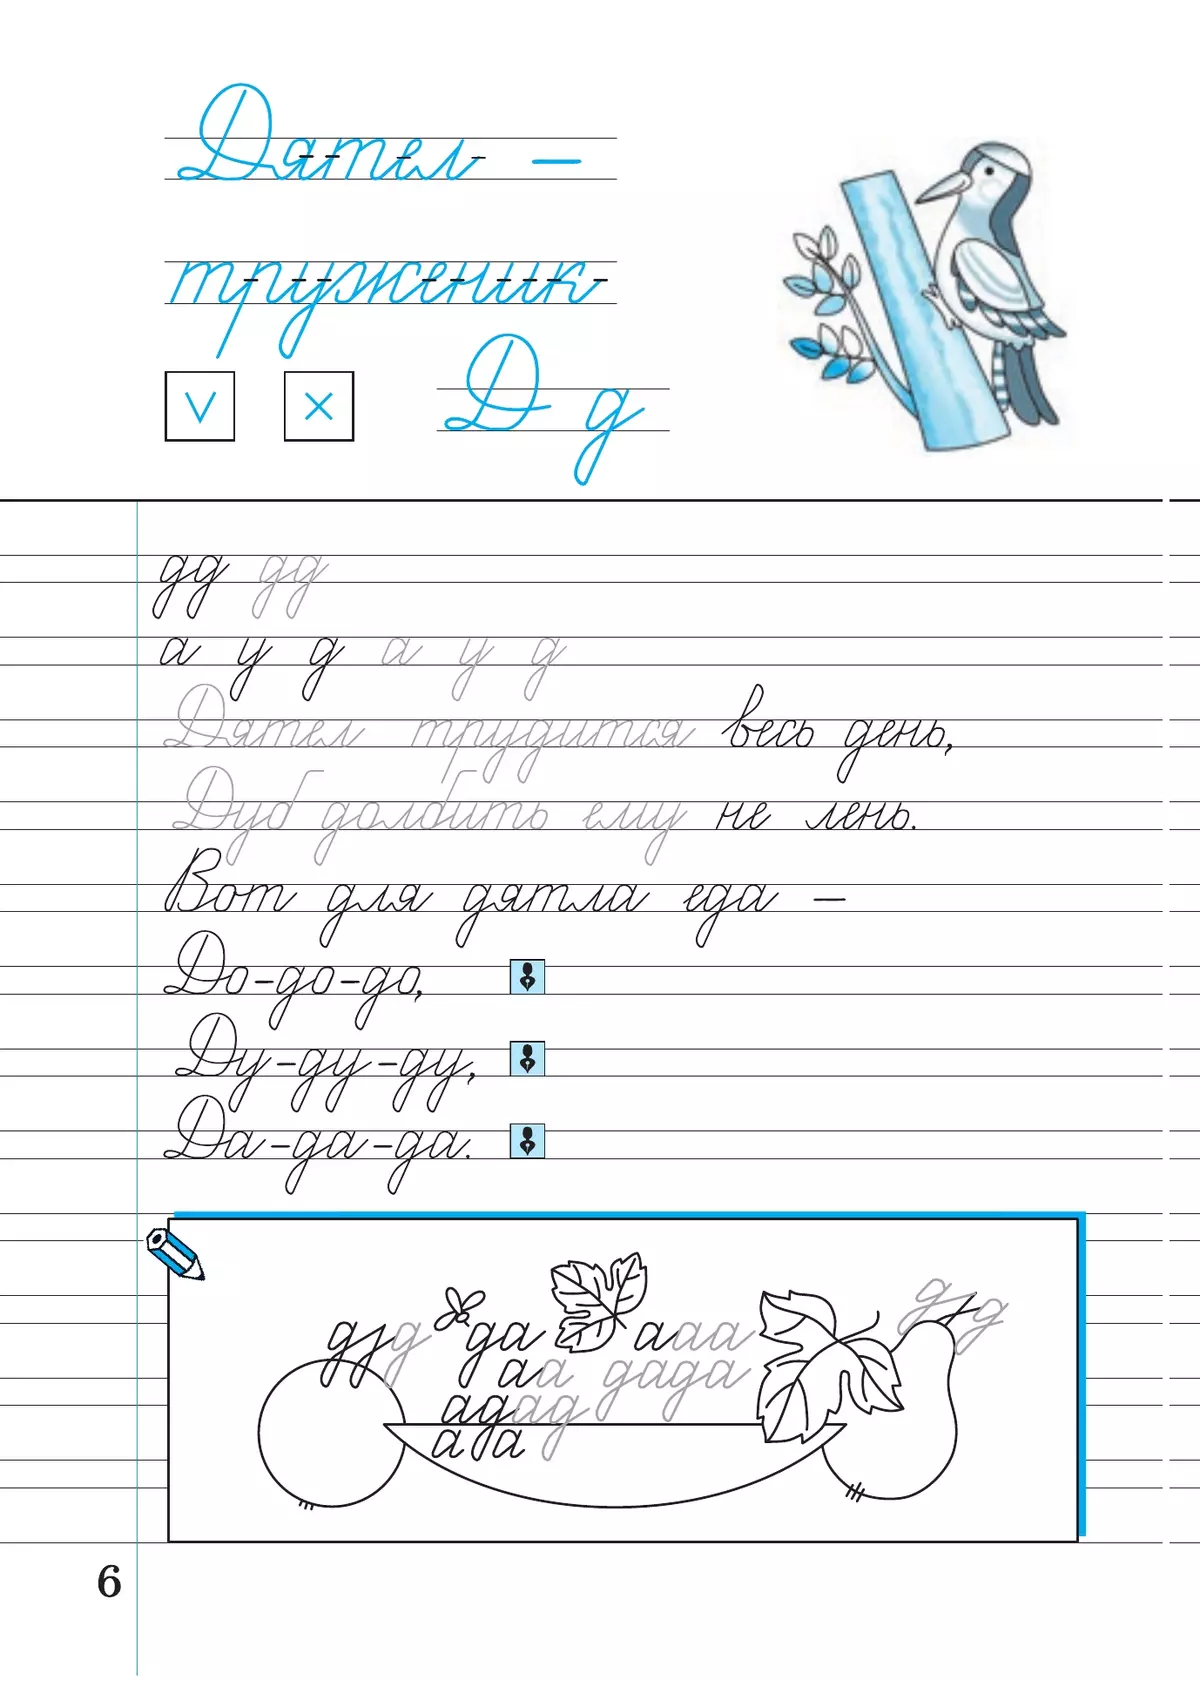 Дятел –
труженик
Д д
дд дд
а у д а у д
Дятел трудится весь день,
Дуб долбить ему не лень.
Вот для дятла еда –
До-до-до,
Ду-ду-ду,
Да-да-да.
д д да а а а а
а а д а д а
а д а д
а д а д
6